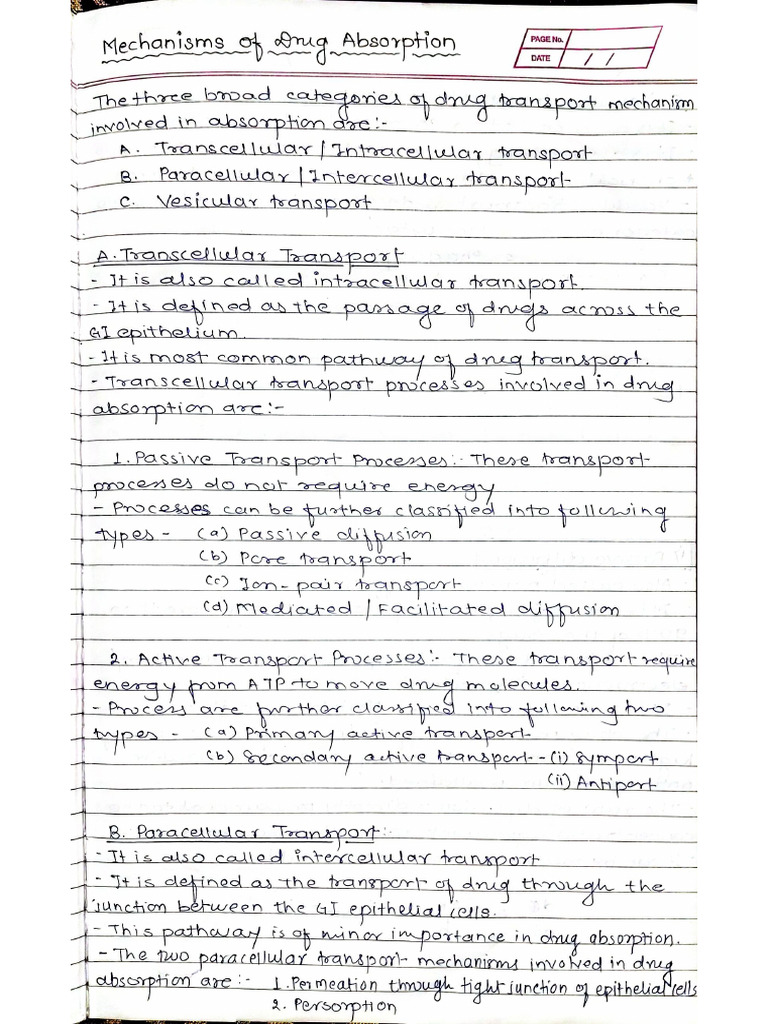 Mechanisms of Drug Absorption
PAGE No.
DATE / /
The three broad categories of drug transport mechanism
involved in absorption are:-
A. Transcellular / Intracellular transport
B. Paracellular / Intercellular transport
C. Vesicular transport
A. Transcellular Transport
- It is also called intracellular transport.
- It is defined as the passage of drugs across the
GI epithelium.
- It is most common pathway of drug transport.
- Transcellular transport processes involved in drug
absorption are:-
1. Passive Transport Processes:- These transport
processes do not require energy
- Processes can be further classified into following
types - (a) Passive diffusion
(b) Pore transport
(c) Ion-pair transport
(d) Mediated / Facilitated diffusion
2. Active Transport Processes:- These transport require
energy from ATP to move drug molecules.
- Process are further classified into following two
types - (a) Primary active transport
(b) Secondary active transport - (i) Symport
(ii) Antiport
B. Paracellular Transport:-
- It is also called intercellular transport
- It is defined as the transport of drug through the
junction between the GI epithelial cells.
- This pathway is of minor importance in drug absorption.
- The two paracellular transport mechanisms involved in drug
absorption are:- 1. Permeation through tight junction of epithelial cells
2. Persorption